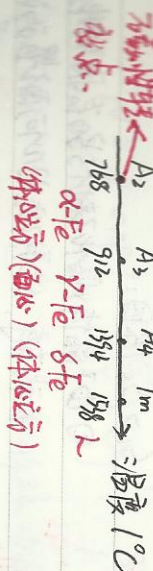 A2 A3 A4 Tm 温度/℃
768 912 1394 1538
α-Fe γ-Fe δ-Fe L
(体心立方)(面心)(体心立方)